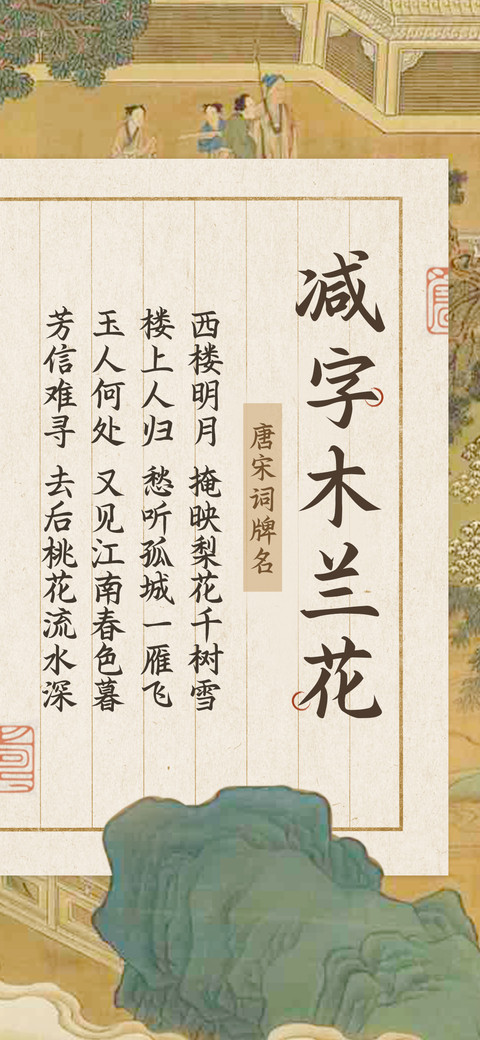 减字木兰花
唐宋词牌名
西楼明月 掩映梨花千树雪
楼上人归 愁听孤城一雁飞
玉人何处 又见江南春色暮
芳信难寻 去后桃花流水深